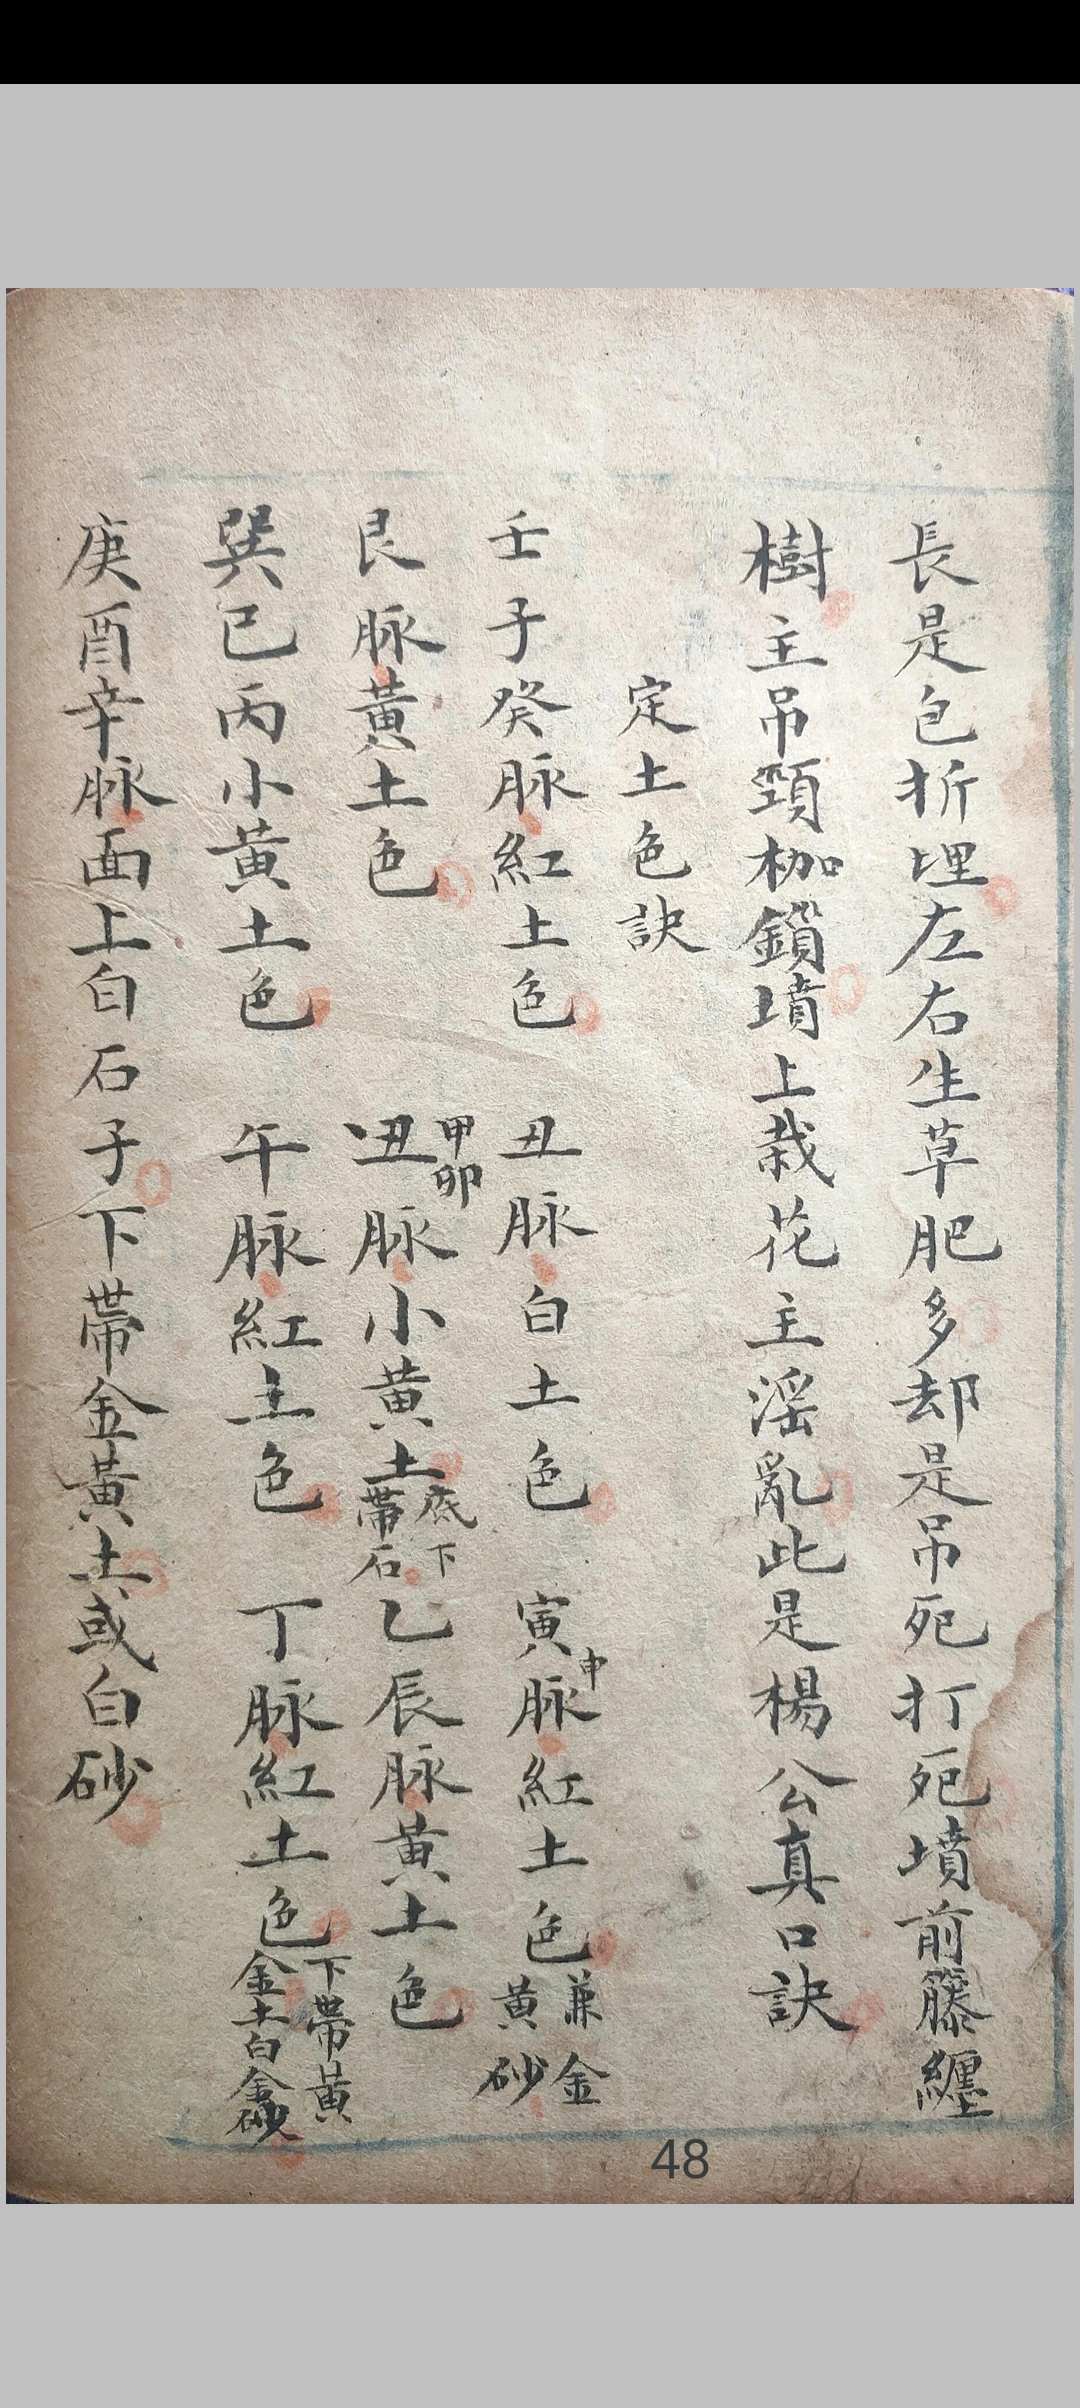 長是包折埋左右生草肥多却是吊死打死墳前籐纏
樹主吊頸枷鎖墳上栽花主淫亂此是楊公真口訣
定土色訣
壬子癸脉紅土色 丑脉白土色 寅申脉紅土色兼金黄砂
艮脉黃土色 甲卯丑脉小黄土底下帶石乙辰脉黄土色
巽巳丙小黄土色 午脉紅土色 丁脉紅土色下帶黃金土白金砂
庚酉辛脉面上白石子下帶金黃土或白砂
48